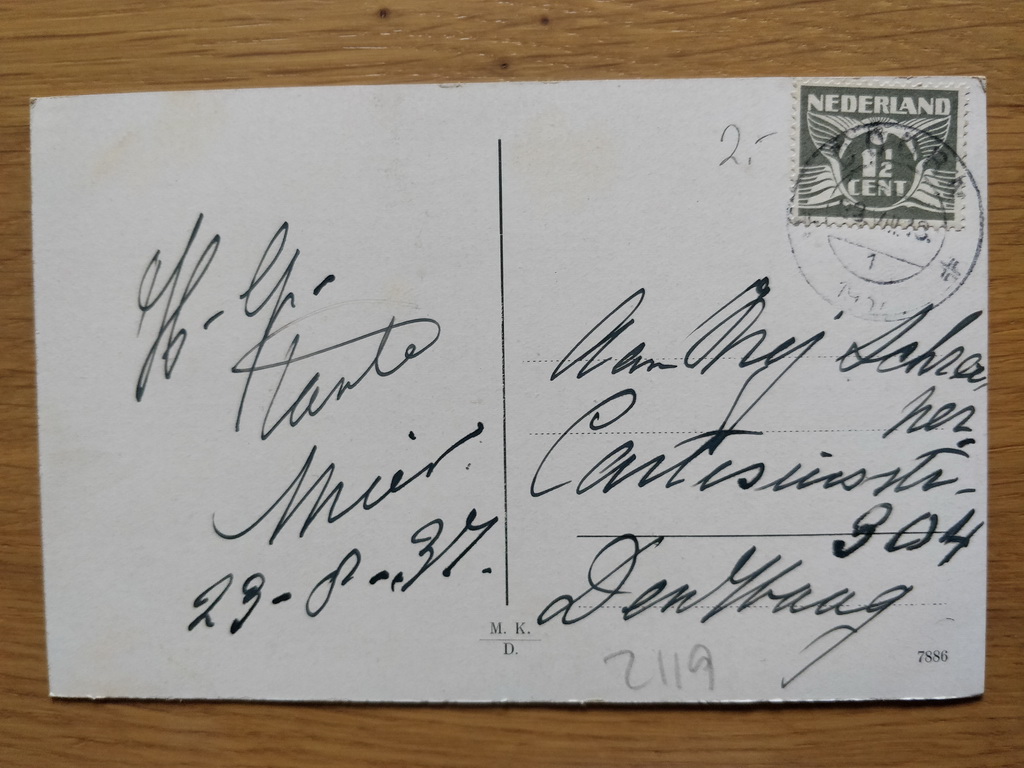 NEDERLAND
1½
CENT
2.-
H.-G.-
Tante
Mier.
23-8-'37.
Aan Mej Schra
per
Cartesiusstr.
304
Den Haag
M. K.
D.
7886
2119